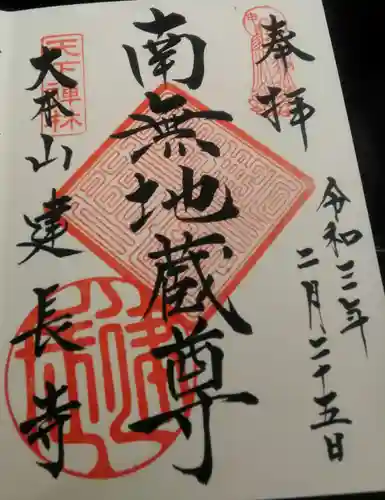 奉拝
令和三年
二月二十五日
南無地蔵尊
天下禅林
大本山建長寺